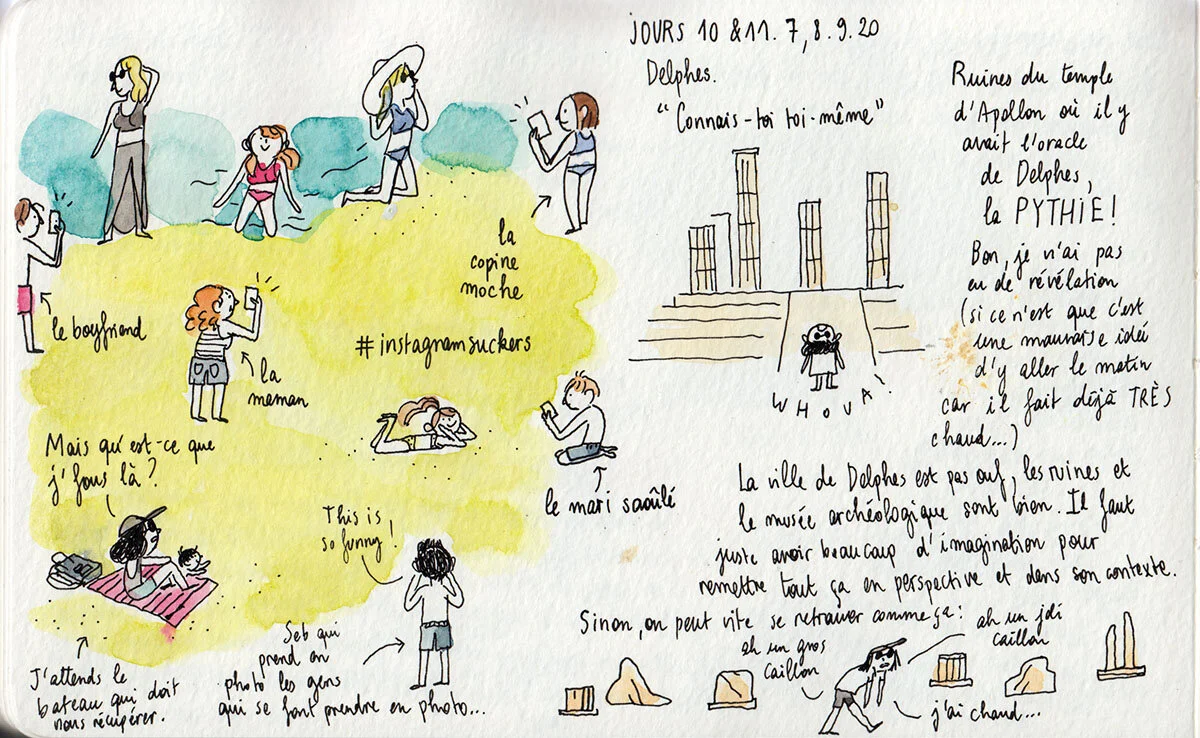 la
copine
moche
le boyfriend
la
maman
#instagramsuckers
le mari saoûlé
Mais qu'est-ce que
j'fous là?
This is
so funny!
J'attends le
bateau qui doit
nous récupérer.
Seb qui
prend en
photo les gens
qui se font prendre en photo...
JOURS 10 & 11. 7, 8. 9. 20
Delphes.
"Connais-toi toi-même"
WHOUA!
Ruines du temple
d'Apollon où il y
avait l'oracle
de Delphes,
la PYTHIE!
Bon, je n'ai pas
eu de révélation
(si ce n'est que c'est
une mauvaise idée
d'y aller le matin
car il fait déjà TRÈS
chaud...)
La ville de Delphes est pas ouf, les ruines et
le musée archéologique sont bien. Il faut
juste avoir beaucoup d'imagination pour
remettre tout ça en perspective et dans son contexte.
Sinon, on peut vite se retrouver comme ça:
ah un gros
caillou
ah un joli
caillou
j'ai chaud...